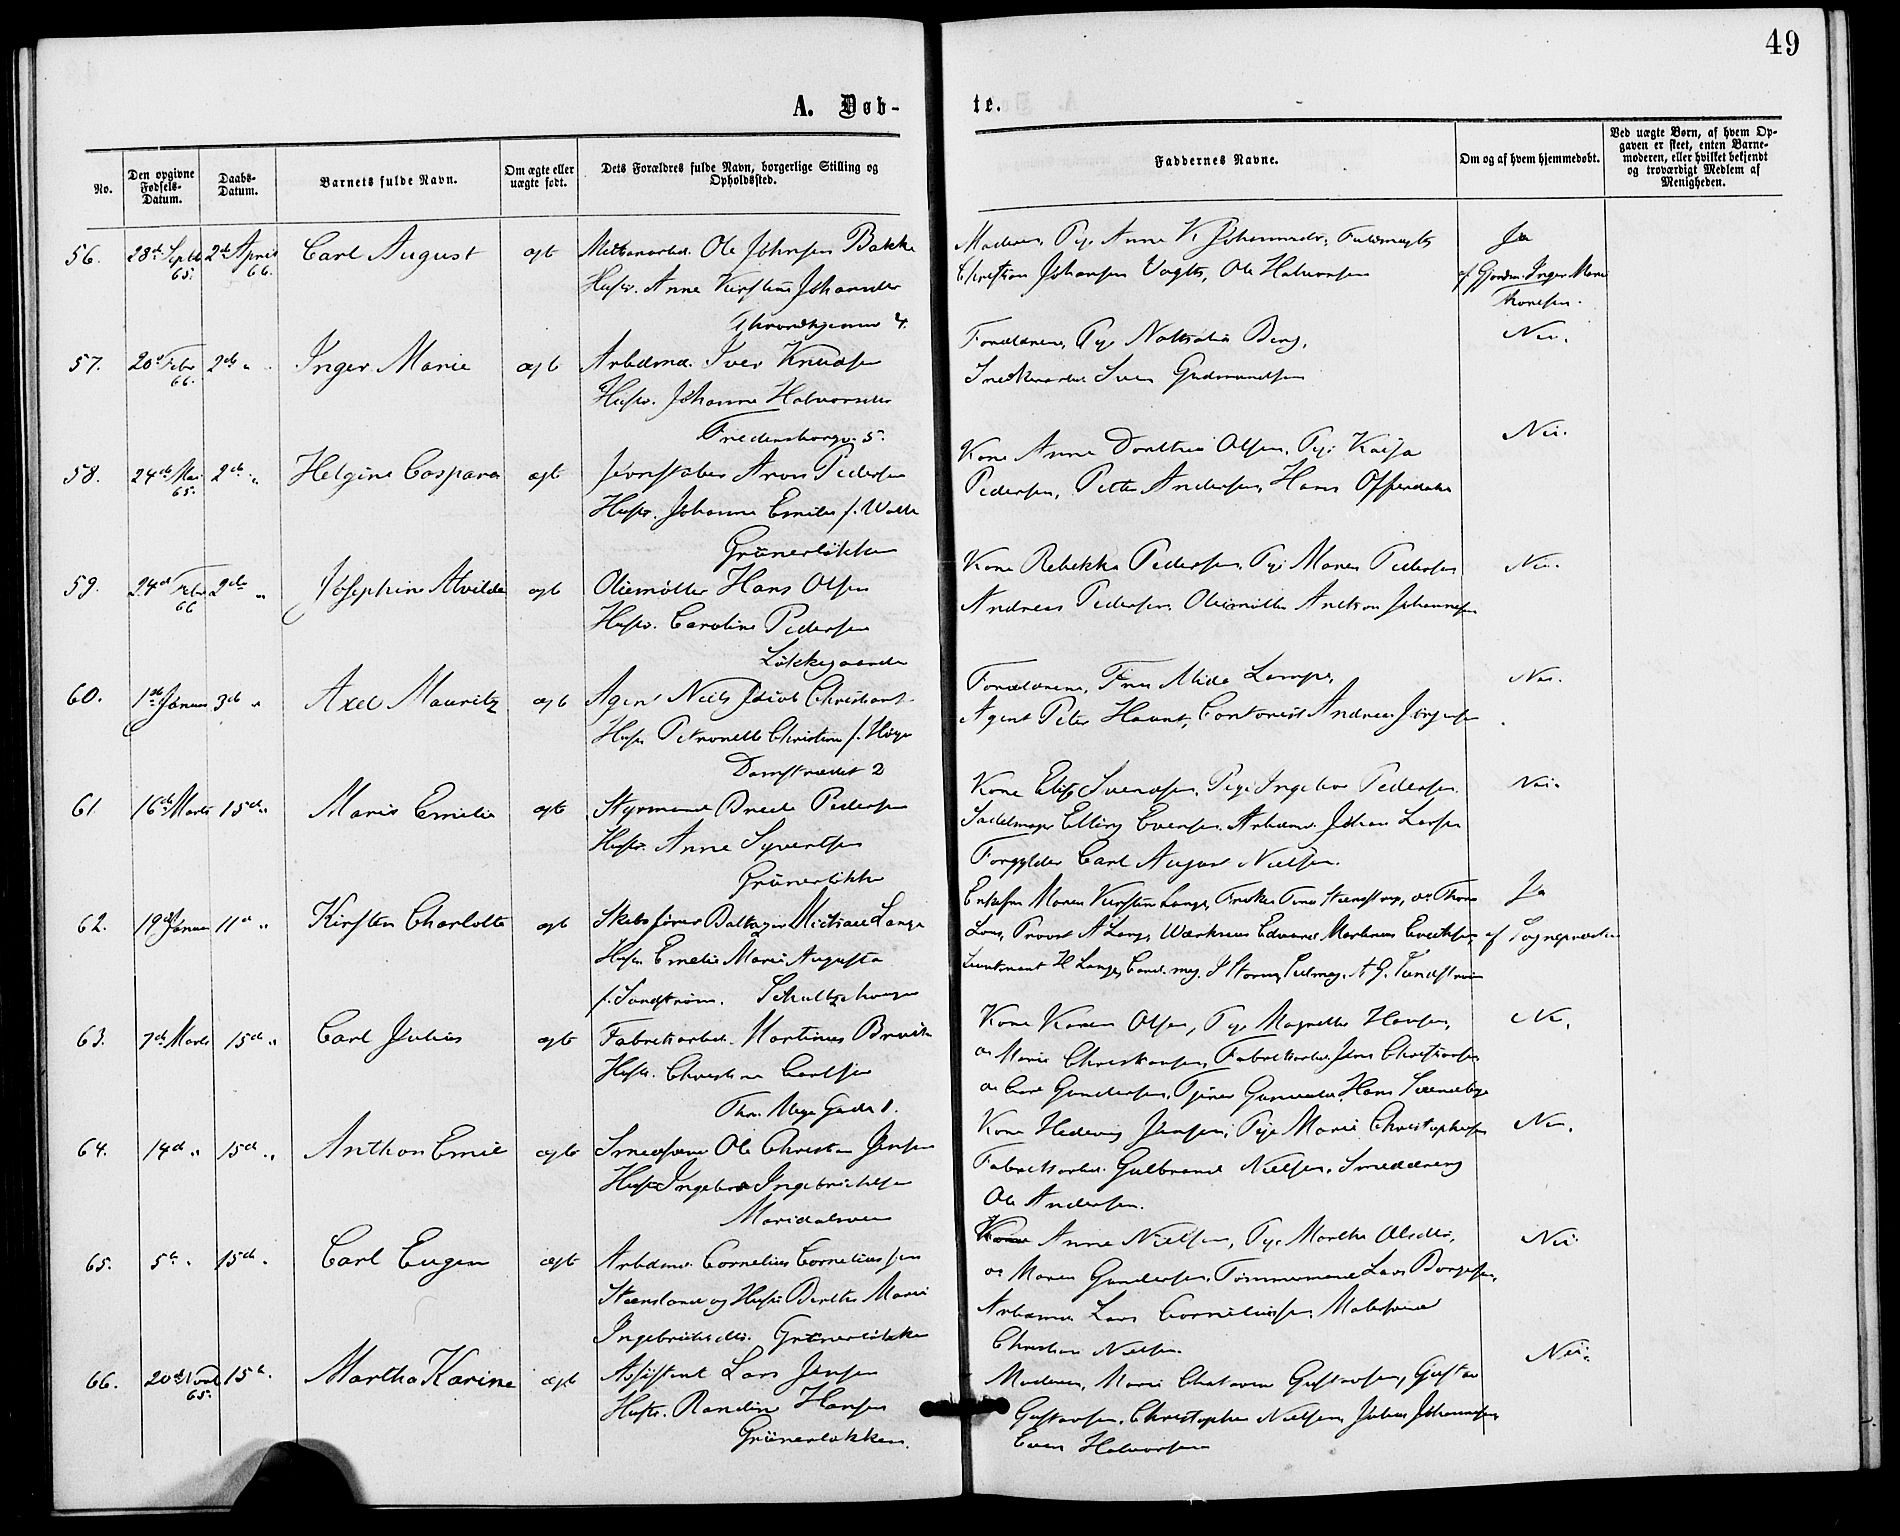 49
A. Døb-
te.
No.
Den opgivne Fødsels-Datum.
Daabs-Datum.
Barnets fulde Navn.
Om ægte eller uægte født.
Dets Forældres fulde Navn, borgerlige Stilling og Opholdssted.
Faddernes Navne.
Om og af hvem hjemmedøbt.
Ved uægte Børn, af hvem Opgaven er skeet, enten Barnemoderen, eller hvilket bekjendt og troværdigt Medlem af Menigheden.
56. 28de Septb 65. 2de April 66. Carl August ægte Ole Johnsen Bakke
Hustr. Anne Kirstine Johansdtr
4.
Moderen, Pige Anne K. Johannesdr,
Christian Johansen Vogts, Ole Halvorsen
Ja
af Gjordm. Inger Marie
Thoresen.
57. 20d Febr 66. 2de " Inger Marie ægte Arbdmd. Iver Knudsen
Hustr. Johanne Halvorsdtr
Fredensborgv. 5.
Forældrene, Pige Nathalia Berg,
Iver Gudmundsen
Nei.
58. 24de Mai 65. 2de " Helgine Caspara ægte Jernstøber Aron Pedersen
Hustr. Johanne Emilie f. Wolle
Grünerløkken
Kone Anne Dorthea Olsen, Pige Kaisa
Pedersen, Petter Andersen, Hans Offerdahl
Nei.
59. 24d Febr 66 2de " Josephine Alvilde ægte Oliemøller Hans Olsen
Hustr. Caroline Pedersen
Løkkegaarden
Kone Rebekka Pedersen, Pige Maren Pedersen
Andreas Pedersen, Oliemøller Andreas Johannesen
Nei.
60. 1ste Januar 3de " Axel Mauritz ægte Agent Niels Jacob Christians
Hustr Petronelle Christine f. Høyer
Damstrædet 2
Forældrene, Frue Alida Lampe,
Agent Peter Haant, Contorist Andreas Jørgensen
Nei.
61 16de Marts 15de " Marie Emilie ægte Styrmand Brede Pedersen
Hustr. Anne Syvertsen
Grünerløkken
Kone Elise Svendsen, Pige Ingebor Pedersen
Sadelmager Elling Evensen, Arbdmd. Johan Larsen
Forgylder Carl August Nielsen.
Nei.
62. 19de Januar 11te " Kirsten Charlotte ægte Skibsfører Baltazar Michael Lange
Hustr. Emelie Marie Augusta
f. Sundstrøm. Schultzehaugen
Enkefru Maren Kirstine Lange, Frøken Trine Steenstrup, og Thora
Lous, Provst A Lange, Edvard Martinus Evensen,
Lieutenant H Lange, Cand. mag. J Storm, A. G. Sundstrøm
Ja
af Sognepræsten
63. 7de Marts 15de " Carl Julius ægte Fabrikarbd. Martinus Brevik
Hustr. Christine Carlsen
Thv. Meyers Gade 1.
Kone Karen Olsen, Pige Magnelle Hansen,
og Marie Christiansen, Fabrikarbd. Jens Christiansen
og Carl Gundersen, Hans Svendsby
Nei.
64. 14de " 15de " Anthon Emil ægte Smedsvend Ole Christian Jensen
Hustr Ingeborg Ingebrichtsen
Maridalsveien
Kone Hedevig Jensen, Pige Marie Christophersen
Fabrikarbd. Gulbrand Nielsen, Smeddreng
Ole Andersen.
Nei.
65. 5te " 15de " Carl Eugen ægte Arbdmd. Cornelius Corneliussen
Steensland og Hustr Berthe Marie
Ingebrichtsdtr. Grünerløkken
Kone Anne Nielsen, Pige Marthe Olsdtr,
og Maren Gundersen, Tømmermand Lars Borgersen,
Arbdmd Lars Corneliussen, Malersvend
Christian Nielsen.
Nei
66. 20de Novb 65. 15de " Martha Karine ægte Assistent Lars Jensen
Hustr. Randine Hansen
Grünerløkken.
Moderen, Marie Gustavsen, Gustav
Gustavsen, Christopher Nielsen, Julius Johannesen,
Even Halvorsen
Nei.